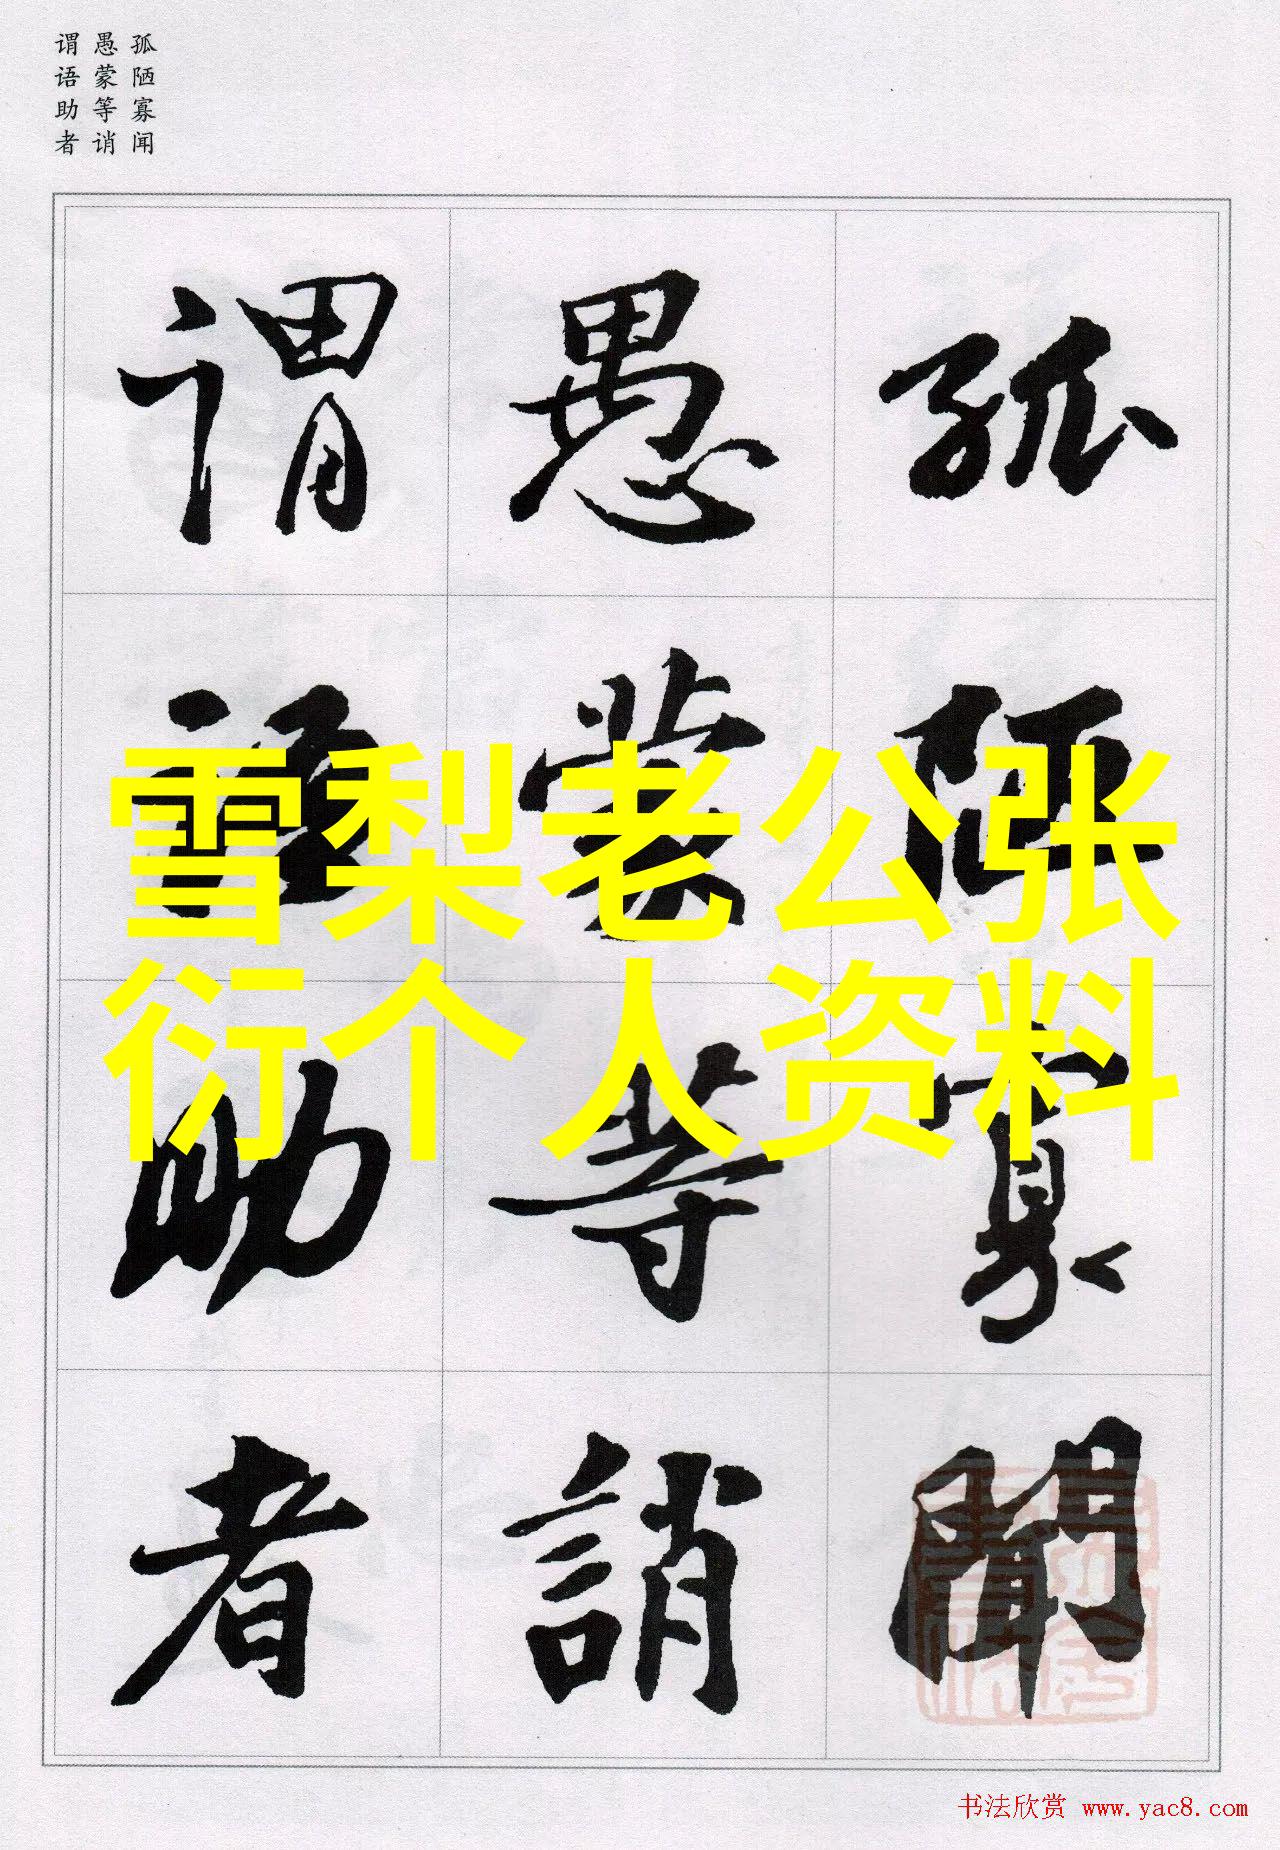 孤陋寡闻
愚蒙等诮
谓语助者
孤陋寡聞
愚蒙等誚
谓语助者
雪梨老公张
衍个人资料
书法欣赏 www.yac8.com